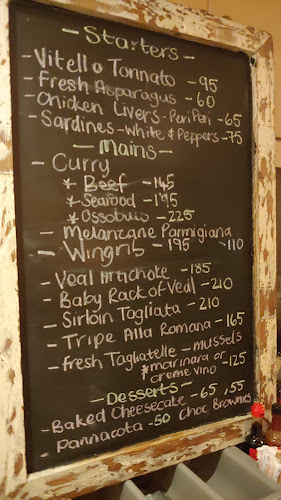 - Starters -
- Vitello Tonnato - 95
- Fresh Asparagus - 60
- Chicken Livers - Peri Peri - 65
- Sardines - White & Peppers - 75
- Mains -
- Curry
* Beef - 145
* Seafood - 195
* Ossobuco - 225
- Melanzane Parmigiana
- 110
- Wingrib - 195
- Veal Artichoke - 185
- Baby Rack of Veal - 210
- Sirloin Tagliata - 210
- Tripe Alla Romana - 165
- Fresh Tagliatelle - mussels
* marinara or - 125
creme vino
- Desserts -
- Baked Cheesecake - 65 , 55
- Pannacota - 50 Choc Brownies